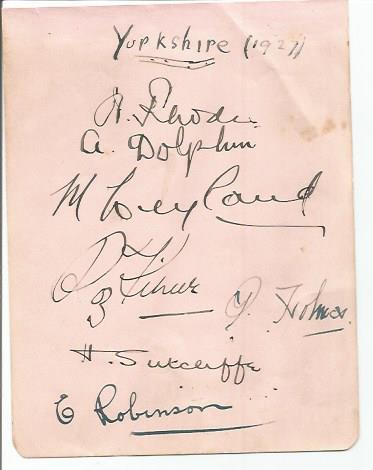 Yorkshire (1927)
A. Rhodes
A. Dolphin
M Leyland
R Kilner
P. Holmes
H. Sutcliffe
E Robinson